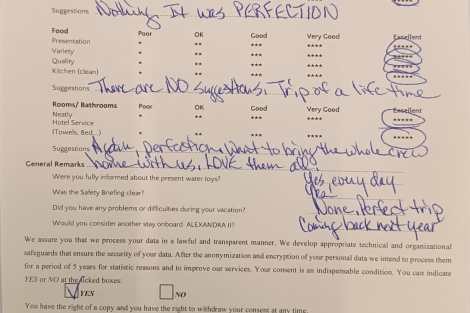 Suggestions Nothing. It was PERFECTION
Food Poor OK Good Very Good Excellent
Presentation * ** *** **** *****
Variety * ** *** **** *****
Quality * ** *** **** *****
Kitchen (clean) * ** *** **** *****
Suggestions There are NO suggestions. Trip of a life time
Rooms/ Bathrooms Poor OK Good Very Good Excellent
Neatly * ** *** **** *****
Hotel Service
(Towels, Bed,..) * ** *** **** *****
Suggestions Again, perfection. Want to bring the whole crew
General Remarks home with us. LOVE them all!
Were you fully informed about the present water toys? Yes, every day
Was the Safety Briefing clear? Yes
Did you have any problems or difficulties during your vacation? None, Perfect trip
Would you consider another stay onboard ALEXANDRA II? Coming back next year
We assure you that we process your data in a lawful and transparent manner. We develop appropriate technical and organizational
safeguards that ensure the security of your data. After the anonymization and encryption of your personal data we intend to process them
for a period of 5 years for statistic reasons and to improve our services. Your consent is an indispensable condition. You can indicate
YES or NO at the ticked boxes:
YES NO
You have the right of a copy and you have the right to withdraw your consent at any time.